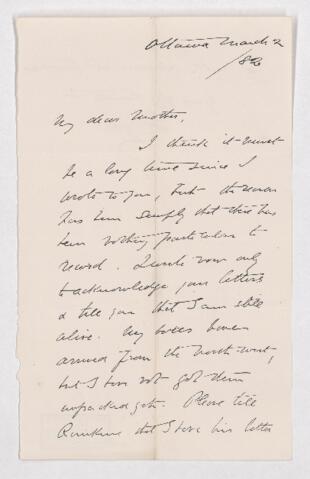 Ottawa March 2
/82
My dear Mother,
I think it must
be a long time since I
wrote to you, but the reason
has been simply that there has
been nothing particular to
record. I write now only
to acknowledge your letters
& tell you that I am still
alive. My boxes have
arrived from the north-west,
but I have not got them
unpacked yet. Please tell
that I have his letter